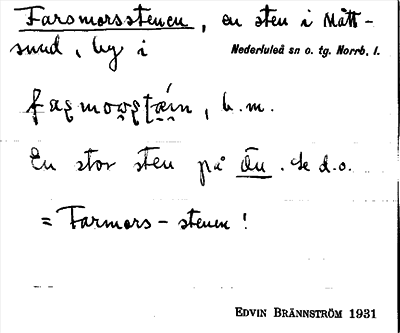 Farsmorsstenen, en sten i Mått-
sund, by i Nederluleå sn o. tg. Norrb. l.
, b. m.
En stor sten på Ön. Se d.o.
= Farmors-stenen!
EDVIN BRÄNNSTRÖM 1931